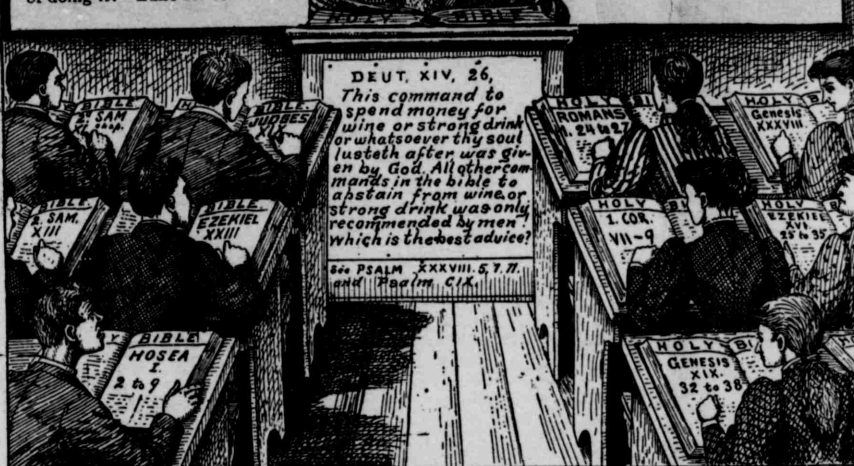 HOLY BIBLE
DEUT. XIV, 26,
This command to
spend money for
wine or strong drink
or whatsoever thy soul
lusteth after was giv-
en by God. All other com-
mands in the bible to
abstain from wine or
strong drink was only
recommended by men!
Which is the best advice?
See PSALM XXXVIII. 5, 7, 11.
and Psalm CIX.
BIBLE
2. SAM
BIBLE.
JUDGES
BIBLE.
2. SAM.
XIII
BIBLE
EZEKIEL
XXIII
BIBLE
HOSEA
I.
2 to 9
HOLY BI
ROMANS
1. 24 to 27
HOLY B
Genesis
XXXVIII
HOLY
1. COR.
VII-9
EZEKIEL
XVI
25 to 35
HOLY BI
GENESIS
XIX.
32 to 38